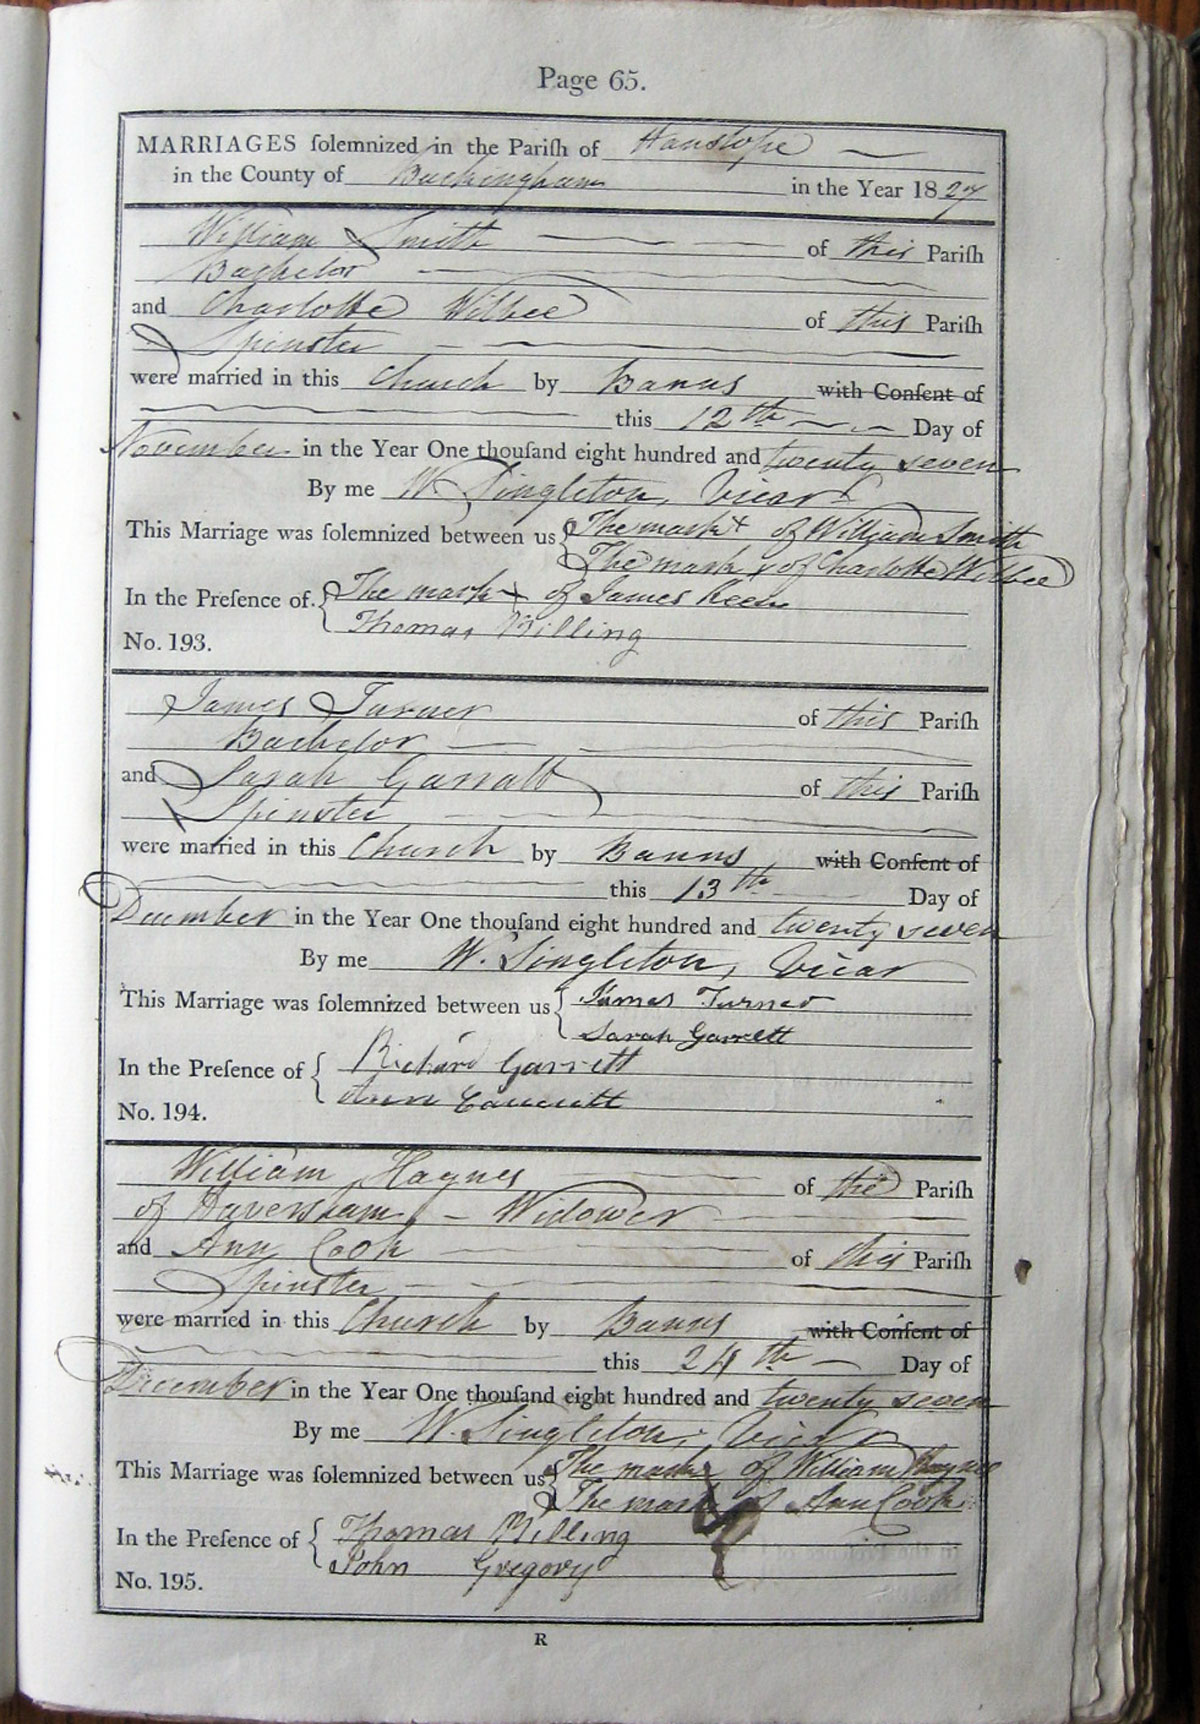 Page 65.
MARRIAGES ſolemnized in the Pariſh of Hanslope
in the County of Buckingham in the Year 1827
William Smith of this Pariſh
Bachelor
and Charlotte Wilbee of this Pariſh
Spinster
were married in this Church by Banns with Conſent of
this 12th Day of
November in the Year One thouſand eight hundred and twenty seven
By me W. Singleton, Vicar
This Marriage was ſolemnized between us The mark x of William Smith
The mark x of Charlotte Wilbee
In the Preſence of The mark x of James Keen
Thomas Billing
No. 193.
James Turner of this Pariſh
Bachelor
and Sarah Garratt of this Pariſh
Spinster
were married in this Church by Banns with Conſent of
this 13th Day of
December in the Year One thouſand eight hundred and twenty seven
By me W. Singleton, Vicar
This Marriage was ſolemnized between us James Turner
Sarah Garrett
In the Preſence of Richard Garrett
No. 194.
William Haynes of the Pariſh
of Haversham, Widower
and Ann Cook of this Pariſh
Spinster
were married in this Church by Banns with Conſent of
this 24th Day of
December in the Year One thouſand eight hundred and twenty seven
By me W. Singleton, Vicar
This Marriage was ſolemnized between us The mark x of William Haynes
The mark of Ann Cook
In the Preſence of Thomas Billing
John Gregory
No. 195.
R